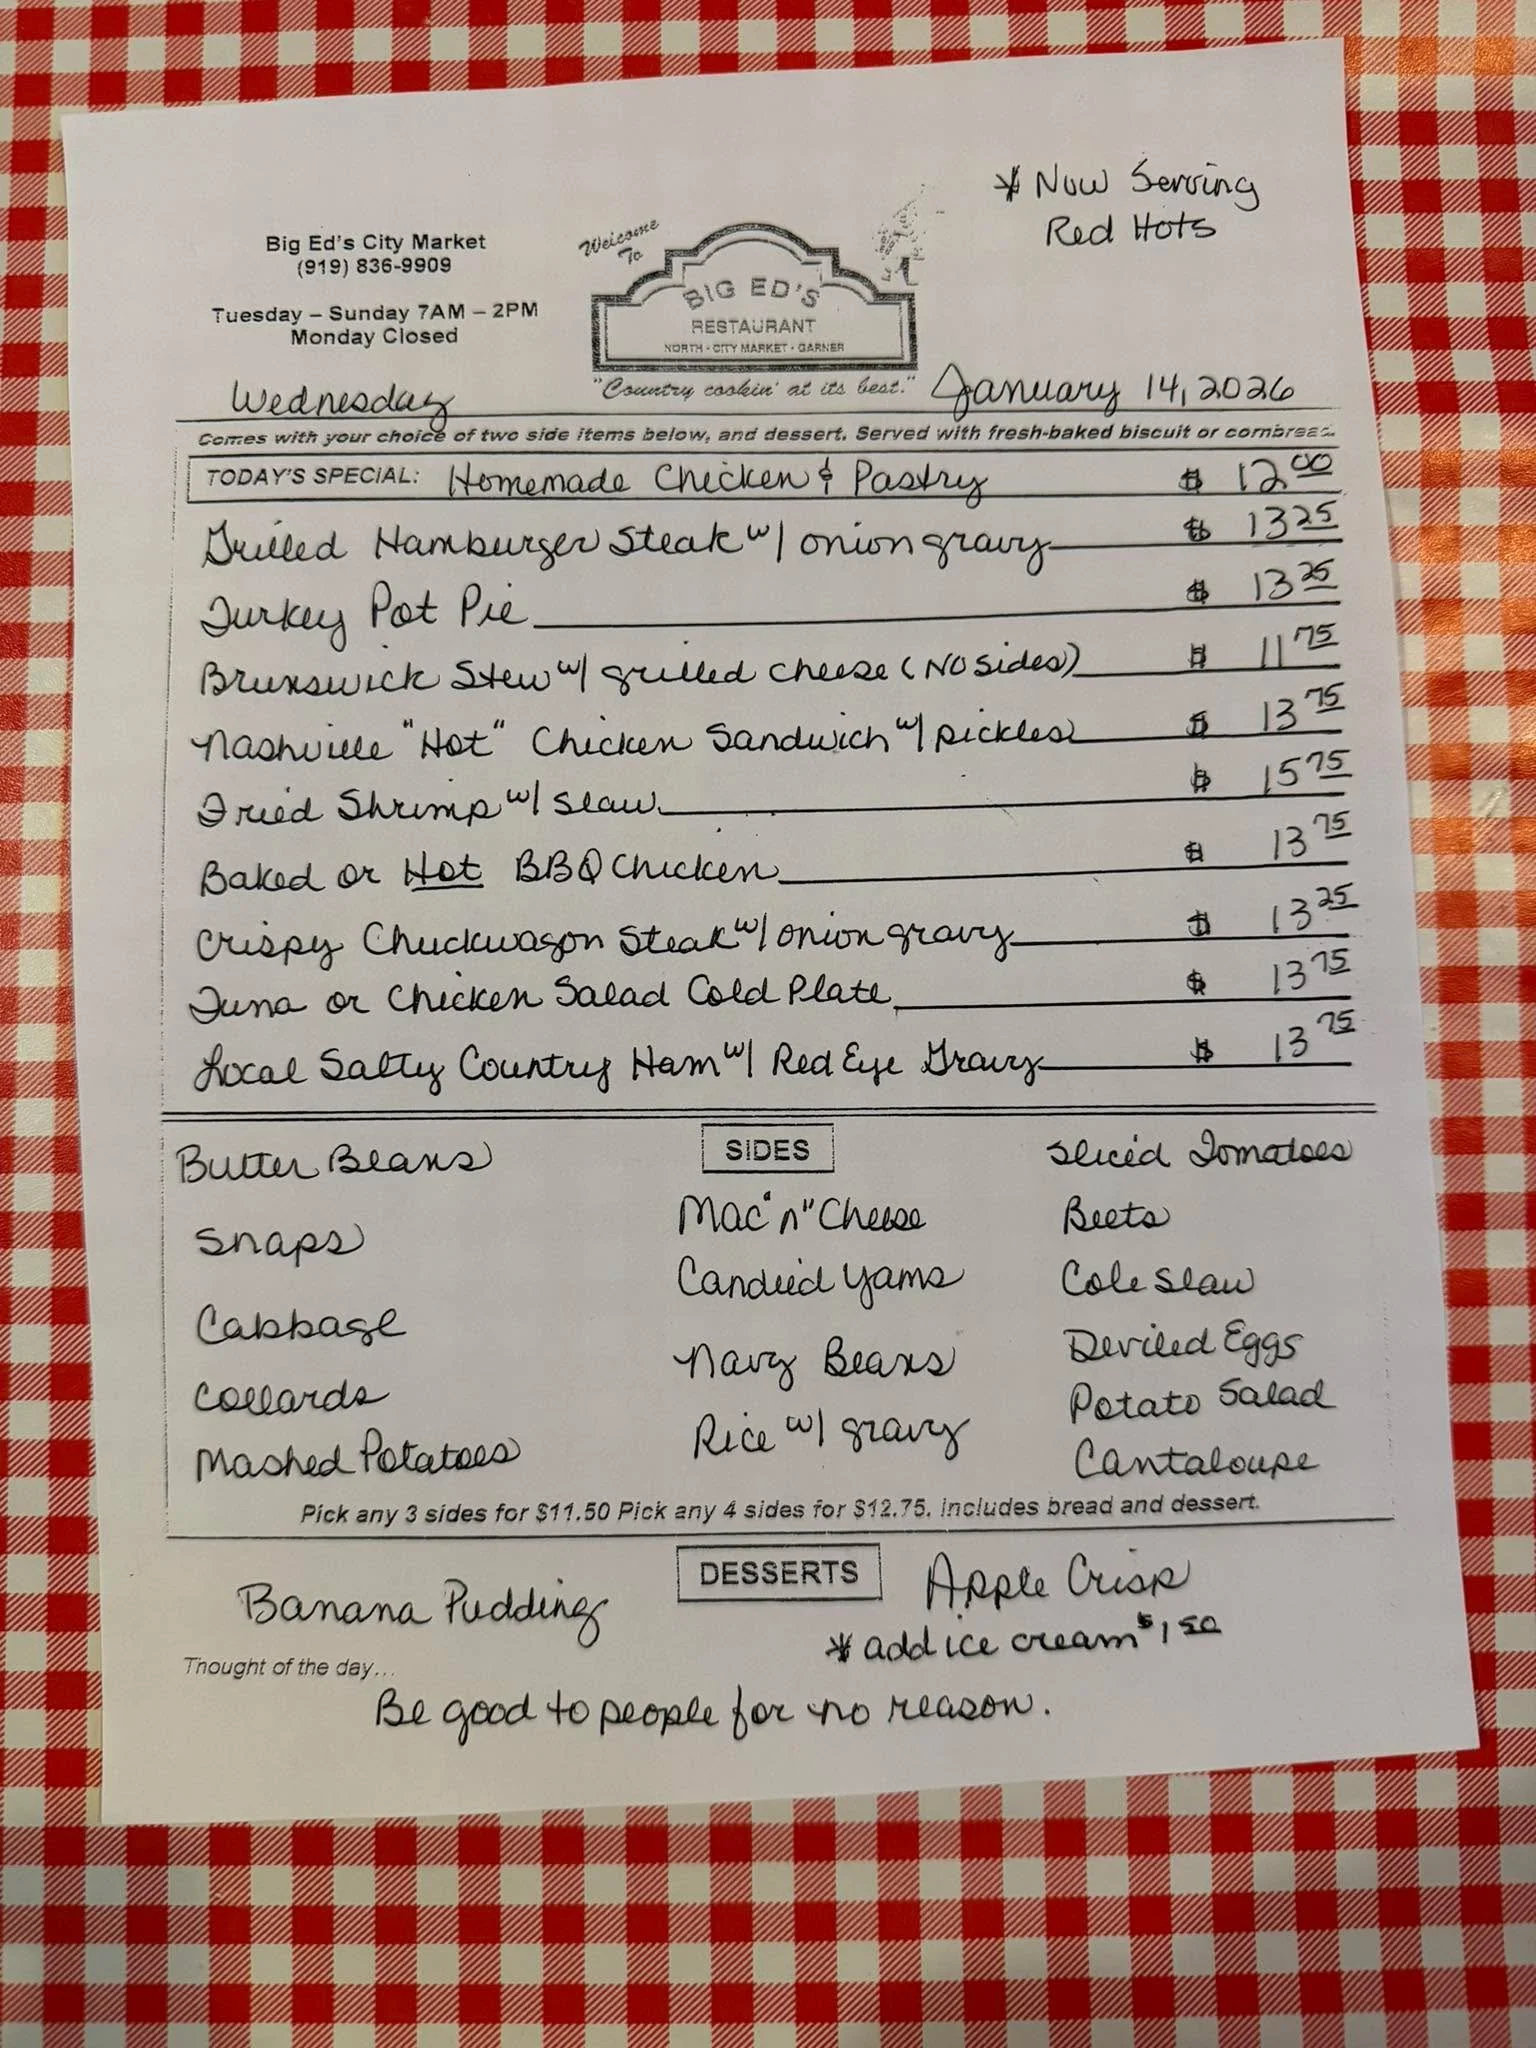 * Now Serving
Red Hots
Big Ed's City Market
(919) 836-9909
Tuesday – Sunday 7AM – 2PM
Monday Closed
Welcome
To
BIG ED'S
RESTAURANT
NORTH - CITY MARKET - GARNER
"Country cookin' at its best."
Wednesday
January 14, 2026
Comes with your choice of two side items below, and dessert. Served with fresh-baked biscuit or cornbread.
TODAY'S SPECIAL: Homemade Chicken & Pastry $ 12.00
Grilled Hamburger Steak w/ onion gravy $ 13 25
Turkey Pot Pie $ 13 25
Brunswick Stew w/ grilled cheese (No sides) $ 11 75
Nashville "Hot" Chicken Sandwich w/ pickles $ 13 75
Fried Shrimp w/ slaw $ 15 75
Baked or Hot BBQ Chicken $ 13 75
Crispy Chuckwagon Steak w/ onion gravy $ 13 25
Tuna or Chicken Salad Cold Plate $ 13 75
Local Salty Country Ham w/ Red Eye Gravy $ 13 75
SIDES
Butter Beans
Snaps
Cabbage
Collards
Mashed Potatoes
Mac "n" Cheese
Candied Yams
Navy Beans
Rice w/ gravy
Sliced Tomatoes
Beets
Cole Slaw
Deviled Eggs
Potato Salad
Cantaloupe
Pick any 3 sides for $11.50 Pick any 4 sides for $12.75. Includes bread and dessert.
DESSERTS
Banana Pudding
Apple Crisp
* add ice cream $1 50
Thought of the day...
Be good to people for no reason.